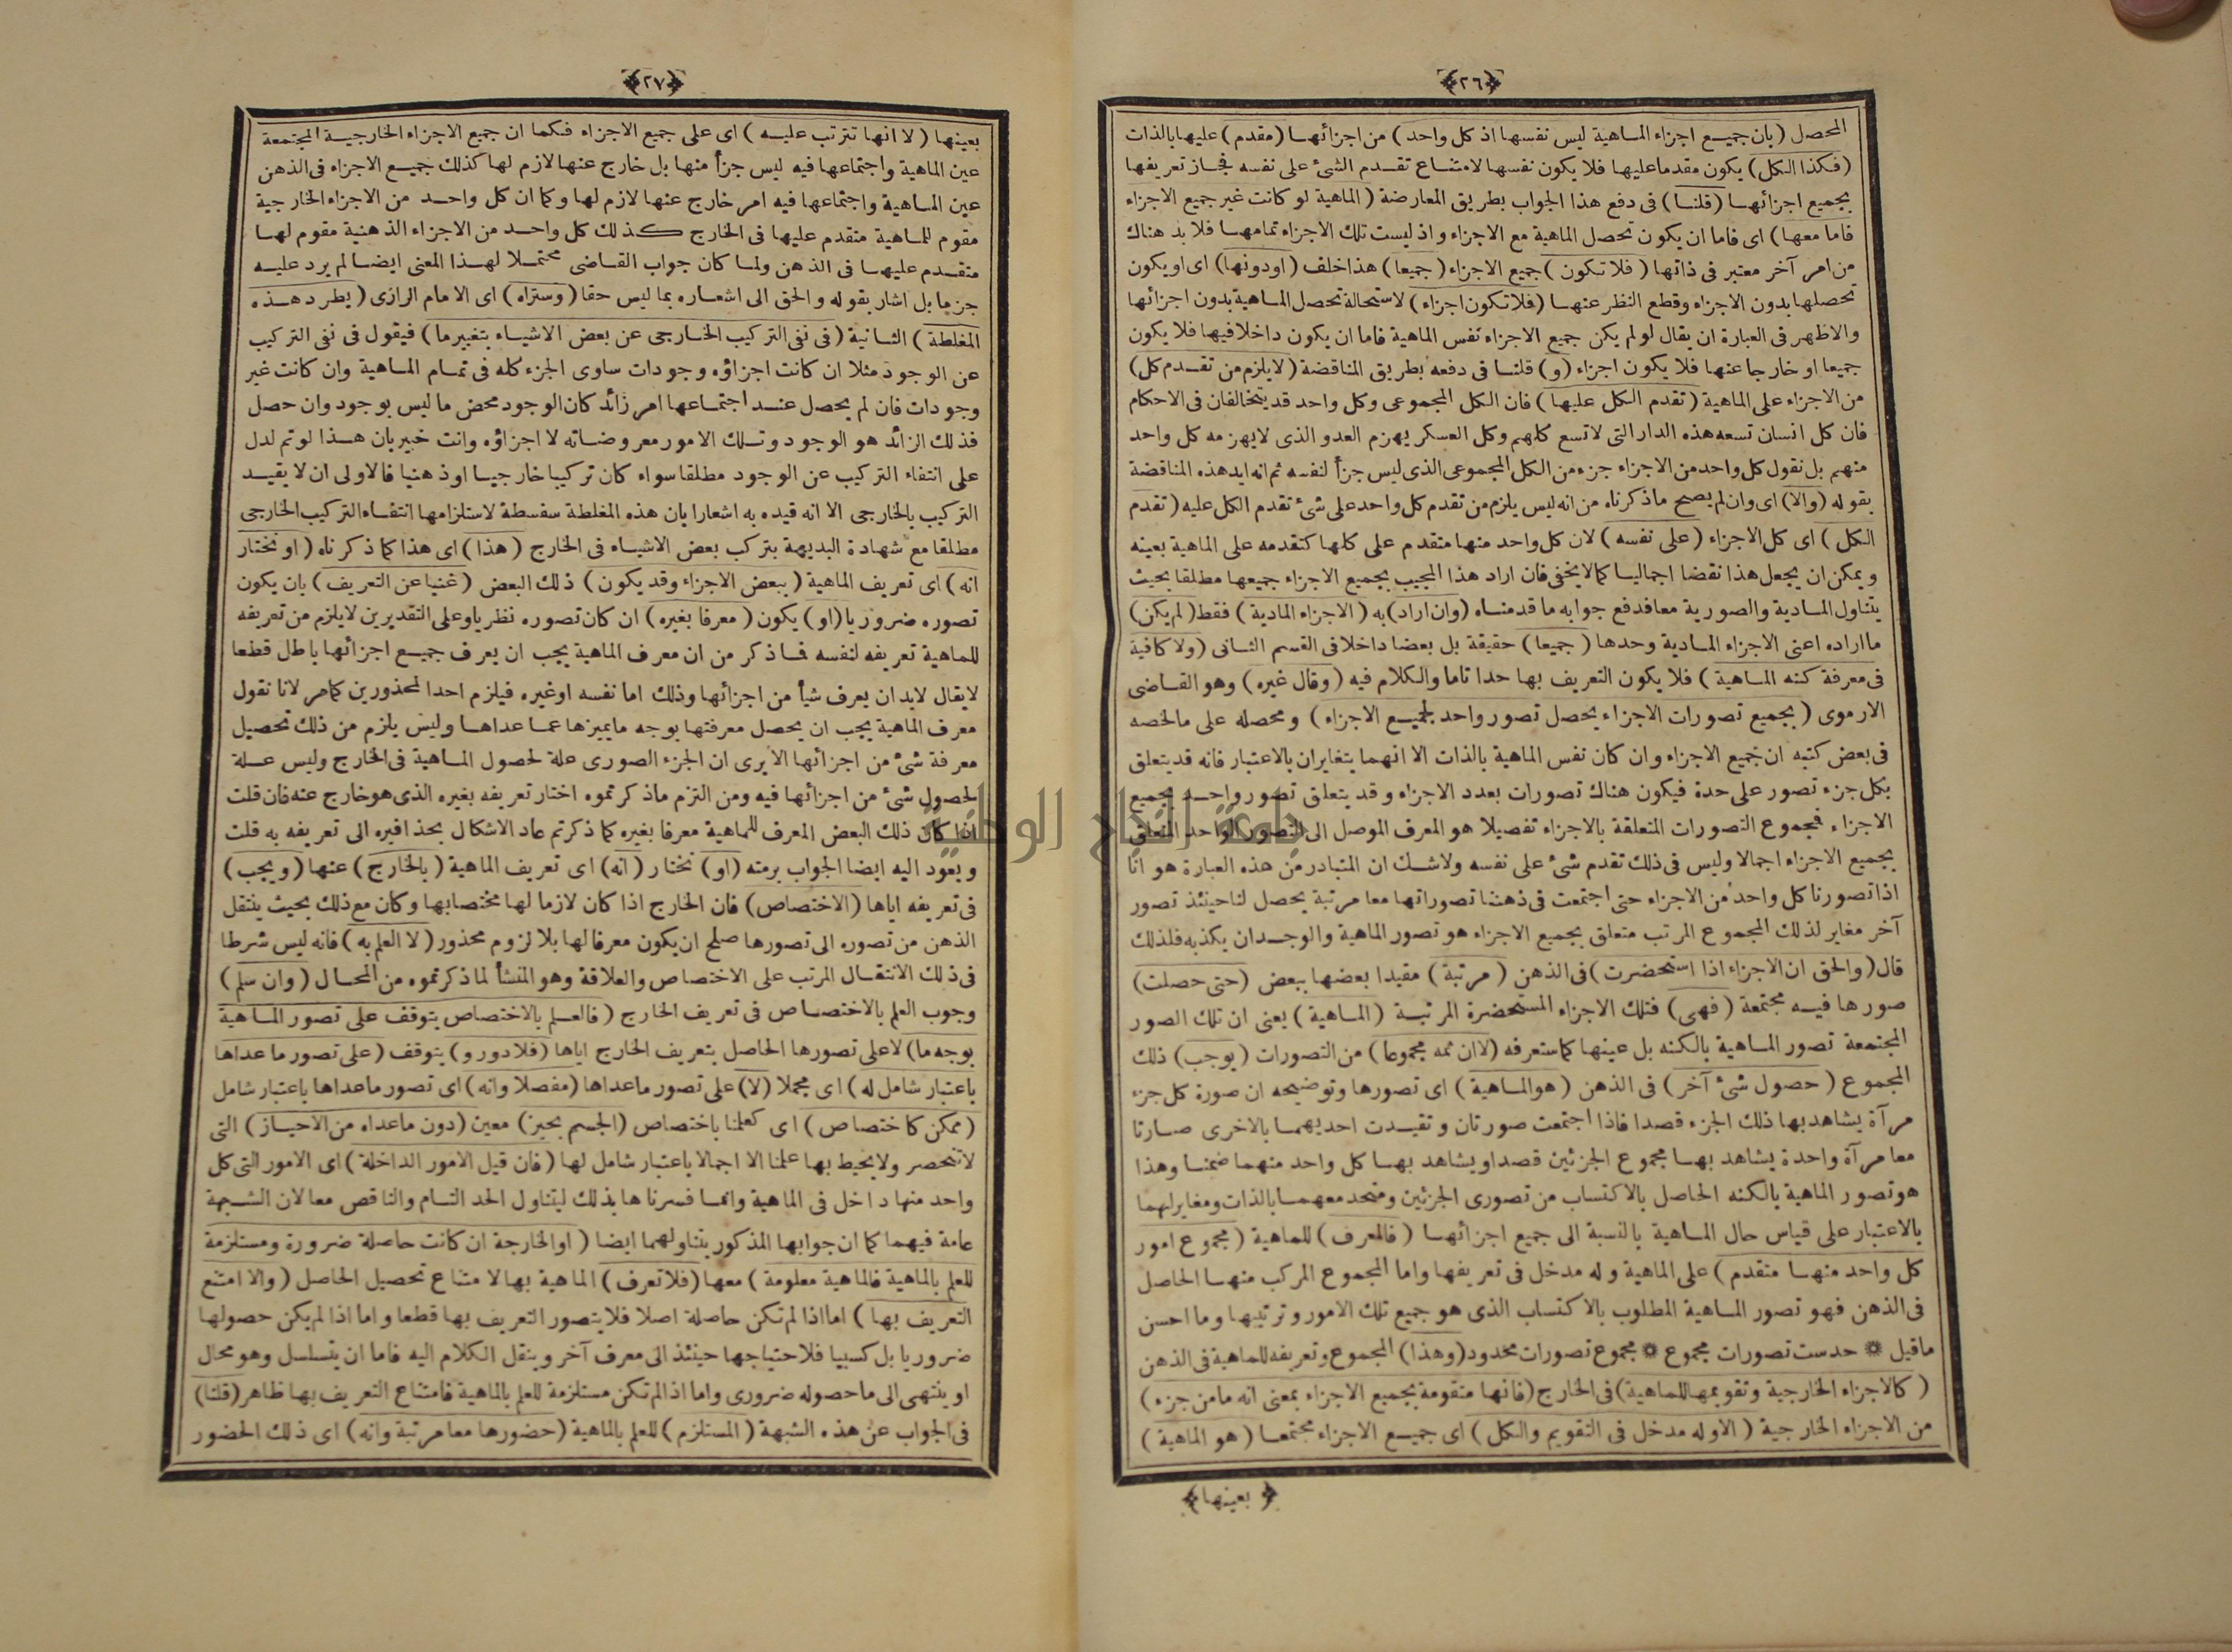 ﴿٢٦﴾
المحصل (بان جميع اجزاء الماهية ليس نفسها اذ كل واحد) من اجزائها (مقدم) عليها بالذات
(فكذا الكل) يكون مقدما عليها فلا يكون نفسها لامتناع تقدم الشئ على نفسه فجاز تعريفها
بجميع اجزائها (قلنا) فى دفع هذا الجواب بطريق المعارضة (الماهية لو كانت غير جميع الاجزاء
فاما معها) اى فاما ان يكون تحصل الماهية مع الاجزاء واذ ليست تلك الاجزاء تمامها فلا بد هناك
من امر آخر معتبر فى ذاتها (فلا تكون) جميع الاجزاء (جميعا) هذا خلف (او دونها) اى او يكون
تحصلها بدون الاجزاء وقطع النظر عنها (فلا تكون اجزاء) لاستحالة تحصل الماهية بدون اجزائها
والاظهر فى العبارة ان يقال لو لم يكن جميع الاجزاء نفس الماهية فاما ان يكون داخلا فيها فلا يكون
جميعا او خارجا عنها فلا يكون اجزاء (و) قلنا فى دفعه بطريق المناقضة (لا يلزم من تقدم كل)
من الاجزاء على الماهية (تقدم الكل عليها) فان الكل المجموعى وكل واحد قد يتخالفان فى الاحكام
فان كل انسان تسعه هذه الدار التى لا تسع كلهم وكل العسكر يهزم العدو الذى لا يهزمه كل واحد
منهم بل نقول كل واحد من الاجزاء جزء من الكل المجموعى الذى ليس جزأ لنفسه ثم انه ايد هذه المناقضة
بقوله (والا) اى وان لم يصح ما ذكرناه من انه ليس يلزم من تقدم كل واحد على شئ تقدم الكل عليه (تقدم
الكل) اى كل الاجزاء (على نفسه) لان كل واحد منها متقدم على كلها كتقدمه على الماهية بعينه
ويمكن ان يجعل هذا نقضا اجماليا كما لا يخفى فان اراد هذا المجيب بجميع الاجزاء جميعها مطلقا بحيث
يتناول المادية والصورية معا فدفع جوابه ما قدمناه (وان اراد) به (الاجزاء المادية) فقط (لم يكن)
ما اراده اعنى الاجزاء المادية وحدها (جميعا) حقيقة بل بعضا داخلا فى القسم الثانى (ولا كافية
فى معرفة كنه الماهية) فلا يكون التعريف بها حدا تاما والكلام فيه (وقال غيره) وهو القاضى
الارموى (بجميع تصورات الاجزاء يحصل تصور واحد لجميع الاجزاء) ومحصله على ما لخصه
فى بعض كتبه ان جميع الاجزاء وان كان نفس الماهية بالذات الا انهما يتغايران بالاعتبار فانه قد يتعلق
بكل جزء تصور على حدة فيكون هناك تصورات بعدد الاجزاء وقد يتعلق تصور واحد بجميع
الاجزاء فمجموع التصورات المتعلقة بالاجزاء تفصيلا هو المعرف الموصل الى التصور الواحد المتعلق
بجميع الاجزاء اجمالا وليس فى ذلك تقدم شئ على نفسه ولا شك ان المتبادر من هذه العبارة هو انا
اذا تصورنا كل واحد من الاجزاء حتى اجتمعت فى ذهننا تصوراتها معا مرتبة يحصل لنا حينئذ تصور
آخر مغاير لذلك المجموع المرتب متعلق بجميع الاجزاء هو تصور الماهية والوجدان يكذبه فلذلك
قال (والحق ان الاجزاء اذا استحضرت) فى الذهن (مرتبة) مقيدا بعضها ببعض (حتى حصلت)
صورها فيه مجتمعة (فهى) فتلك الاجزاء المستحضرة المرتبة (الماهية) يعنى ان تلك الصور
المجتمعة تصور الماهية بالكنه بل عينها كما ستعرفه (لا ان ثمه مجموعا) من التصورات (يوجب) ذلك
المجموع (حصول شئ آخر) فى الذهن (هو الماهية) اى تصورها وتوضيحه ان صورة كل جزء
مرآة يشاهد بها ذلك الجزء قصدا فاذا اجتمعت صورتان وتقيدت احديهما بالاخرى صارتا
معا مرآة واحدة يشاهد بها مجموع الجزئين قصدا ويشاهد بها كل واحد منهما ضمنا وهذا
هو تصور الماهية بالكنه الحاصل بالاكتساب من تصورى الجزئين ومتحد معهما بالذات ومغاير لهما
بالاعتبار على قياس حال الماهية بالنسبة الى جميع اجزائها (فالمعرف) للماهية (مجموع امور
كل واحد منها متقدم) على الماهية وله مدخل فى تعريفها واما المجموع المركب منها الحاصل
فى الذهن فهو تصور الماهية المطلوب بالاكتساب الذى هو جميع تلك الامور وترتيبها وما احسن
ماقيل ❁ حدست تصورات مجموع ❁ مجموع تصورات محدود (وهذا) المجموع وتعريفه للماهية فى الذهن
(كالاجزاء الخارجية وتقويمها للماهية) فى الخارج (فانها متقومة بجميع الاجزاء بمعنى انه ما من جزء)
من الاجزاء الخارجية (الا وله مدخل فى التقويم والكل) اى جميع الاجزاء مجتمعا (هو الماهية)
﴿بعينها﴾
﴿٢٧﴾
بعينها (لا انها تترتب عليه) اى على جميع الاجزاء فكما ان جميع الاجزاء الخارجية المجتمعة
عين الماهية واجتماعها فيه ليس جزأ منها بل خارج عنها لازم لها كذلك جميع الاجزاء فى الذهن
عين الماهية واجتماعها فيه امر خارج عنها لازم لها وكما ان كل واحد من الاجزاء الخارجية
مقوم للماهية متقدم عليها فى الخارج كذلك كل واحد من الاجزاء الذهنية مقوم لها
متقدم عليها فى الذهن ولما كان جواب القاضى محتملا لهذا المعنى ايضا لم يرد عليه
جزما بل اشار بقوله والحق الى اشعاره بما ليس حقا (وستراه) اى الامام الرازى (يطرد هذه
المغلطة) الثانية (فى نفى التركيب الخارجى عن بعض الاشياء بتغيير ما) فيقول فى نفى التركيب
عن الوجود مثلا ان كانت اجزاؤه وجودات ساوى الجزء كله فى تمام الماهية وان كانت غير
وجودات فان لم يحصل عند اجتماعها امر زائد كان الوجود محض ما ليس بوجود وان حصل
فذلك الزائد هو الوجود وتلك الامور معروضاته لا اجزاؤه وانت خبير بان هذا لو تم لدل
على انتفاء التركيب عن الوجود مطلقا سواء كان تركيبا خارجيا او ذهنيا فالاولى ان لا يقيد
التركيب بالخارجى الا انه قيده به اشعارا بان هذه المغلطة سفسطة لاستلزامها انتفاء التركيب الخارجى
مطلقا مع شهادة البديهة بتركب بعض الاشياء فى الخارج (هذا) اى هذا كما ذكرناه (او نختار
انه) اى تعريف الماهية (ببعض الاجزاء وقد يكون) ذلك البعض (غنيا عن التعريف) بان يكون
تصوره ضروريا (او) يكون (معرفا بغيره) ان كان تصوره نظريا وعلى التقديرين لا يلزم من تعريفه
للماهية تعريفه لنفسه فما ذكر من ان معرف الماهية يجب ان يعرف جميع اجزائها باطل قطعا
لا يقال لابد ان يعرف شيأ من اجزائها وذلك اما نفسه او غيره فيلزم احد المحذورين كما مر لانا نقول
معرف الماهية يجب ان يحصل معرفتها بوجه ما يميزها عما عداها وليس يلزم من ذلك تحصيل
معرفة شئ من اجزائها الا يرى ان الجزء الصورى علة لحصول الماهية فى الخارج وليس علة
لحصول شئ من اجزائها فيه ومن التزم ما ذكرتموه اختار تعريفه بغيره الذى هو خارج عنه فان قلت
اذا كان ذلك البعض المعرف للماهية معرفا بغيره كما ذكرتم عاد الاشكال بحذافيره الى تعريفه به قلت
ويعود اليه ايضا الجواب برمته (او) نختار (انه) اى تعريف الماهية (بالخارج) عنها (ويجب)
فى تعريفه اياها (الاختصاص) فان الخارج اذا كان لازما لها مختصا بها وكان مع ذلك بحيث ينتقل
الذهن من تصوره الى تصورها صلح ان يكون معرفا لها بلا لزوم محذور (لا العلم به) فانه ليس شرطا
فى ذلك الانتقال المرتب على الاختصاص والعلاقة وهو المنشأ لما ذكرتموه من المحال (وان سلم)
وجوب العلم بالاختصاص فى تعريف الخارج (فالعلم بالاختصاص يتوقف على تصور الماهية
بوجه ما) لا على تصورها الحاصل بتعريف الخارج اياها (فلا دور و) يتوقف (على تصور ما عداها
باعتبار شامل له) اى مجملا (لا) على تصور ما عداها (مفصلا وانه) اى تصور ما عداها باعتبار شامل
(ممكن كاختصاص) اى كعلمنا باختصاص (الجسم بحيز) معين (دون ما عداه من الاحياز) التى
لا تنحصر ولا يحيط بها علمنا الا اجمالا باعتبار شامل لها (فان قيل الامور الداخلة) اى الامور التى كل
واحد منها داخل فى الماهية وانما فسرناها بذلك ليتناول الحد التام والناقص معا لان الشبهة
عامة فيهما كما ان جوابها المذكور يتناولهما ايضا (او الخارجة ان كانت حاصلة ضرورة ومستلزمة
للعلم بالماهية فالماهية معلومة) معها (فلا تعرف) الماهية بها لامتناع تحصيل الحاصل (والا امتنع
التعريف بها) اما اذا لم تكن حاصلة اصلا فلا يتصور التعريف بها قطعا واما اذا لم يكن حصولها
ضروريا بل كسبيا فلاحتياجها حينئذ الى معرف آخر وينقل الكلام اليه فاما ان يتسلسل وهو محال
او ينتهى الى ما حصوله ضرورى واما اذا لم تكن مستلزمة للعلم بالماهية فامتناع التعريف بها ظاهر (قلنا)
فى الجواب عن هذه الشبهة (المستلزم) للعلم بالماهية (حضورها معا مرتبة وانه) اى ذلك الحضور
جامعة النجاح الوطنية